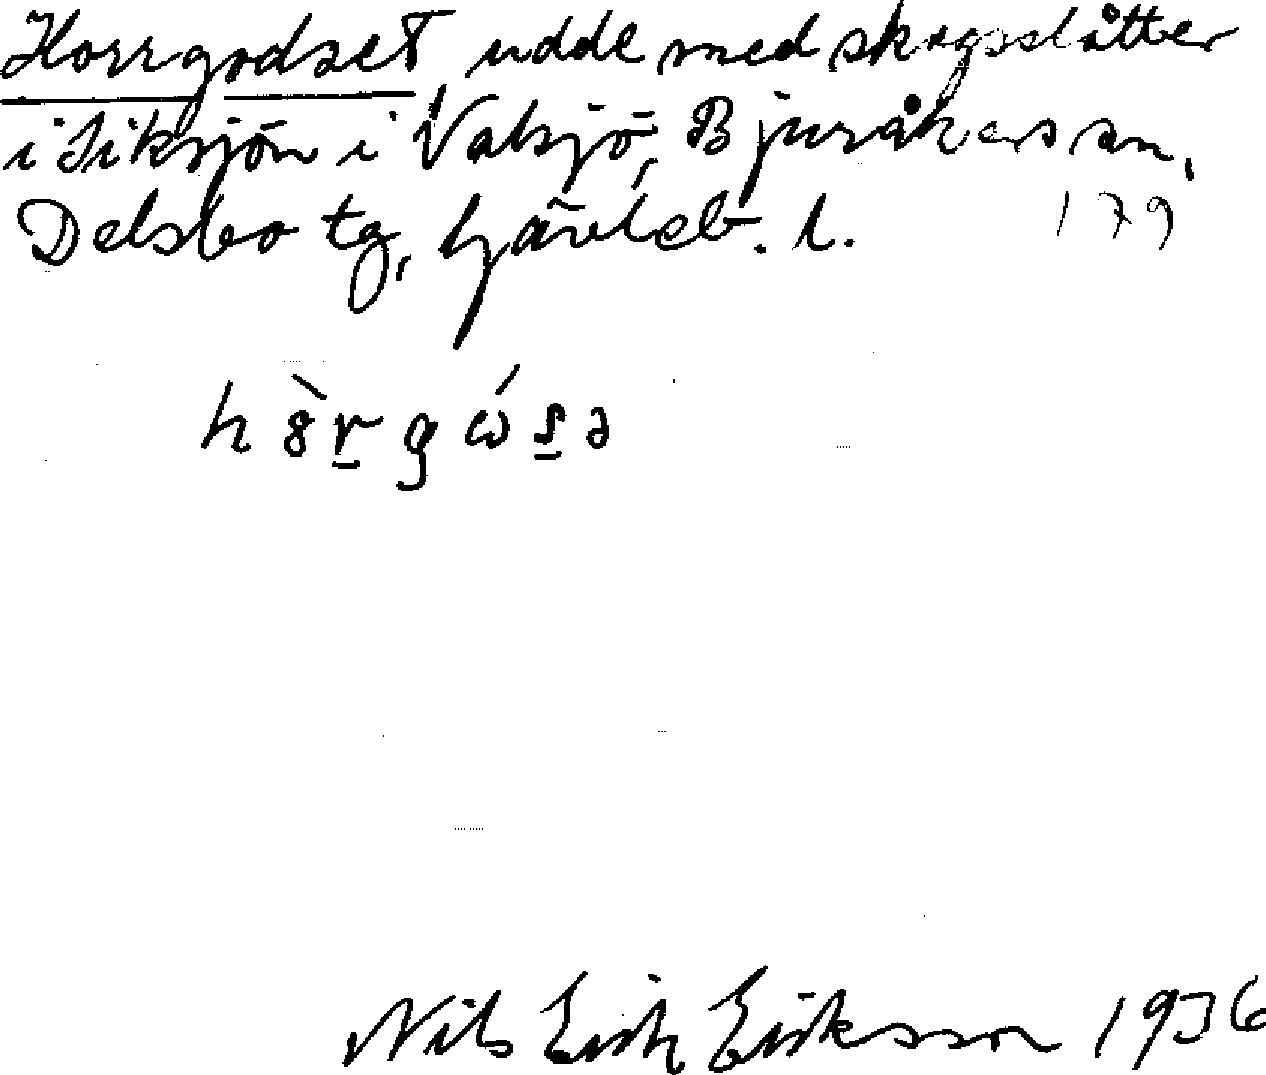 Horrgodset, udde med skogsslåtter
i Siksjön i Valsjö, Bjuråkers sn,
Delsbo tg, Gävleb. l. 179
Nils Erik Eriksson 1936